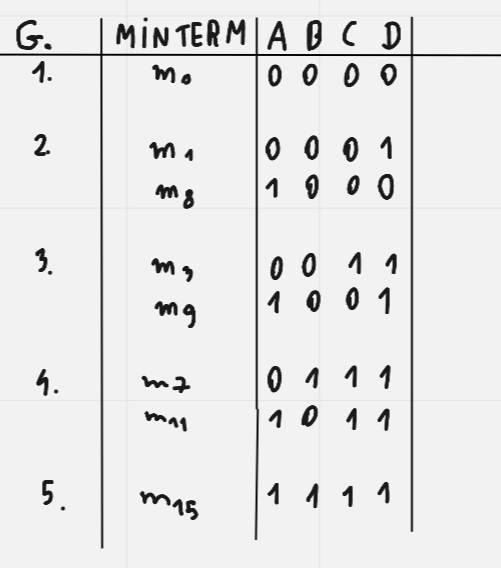 G. MİNTERM A B C D
1. m0 0 0 0 0
2. m1 0 0 0 1
m8 1 0 0 0
3. m3 0 0 1 1
m9 1 0 0 1
4. m7 0 1 1 1
m11 1 0 1 1
5. m15 1 1 1 1